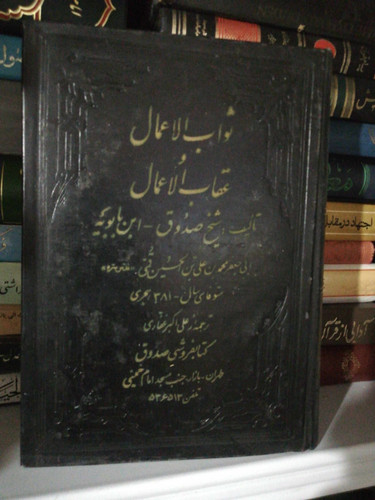 ثواب الاعمال
و
عقاب الاعمال
تالیف: شیخ صدوق - ابن بابویه
ابی جعفر محمد بن علی بن الحسین قمی
متوفای سال - ۳۸۱ هجری
ترجمه: علی اکبر غفاری
کتابفروشی صدوق
طهران - بازار جنب مسجد امام خمینی
تلفن ۵۳۶۵۱۳
اجتهاد در مقابل